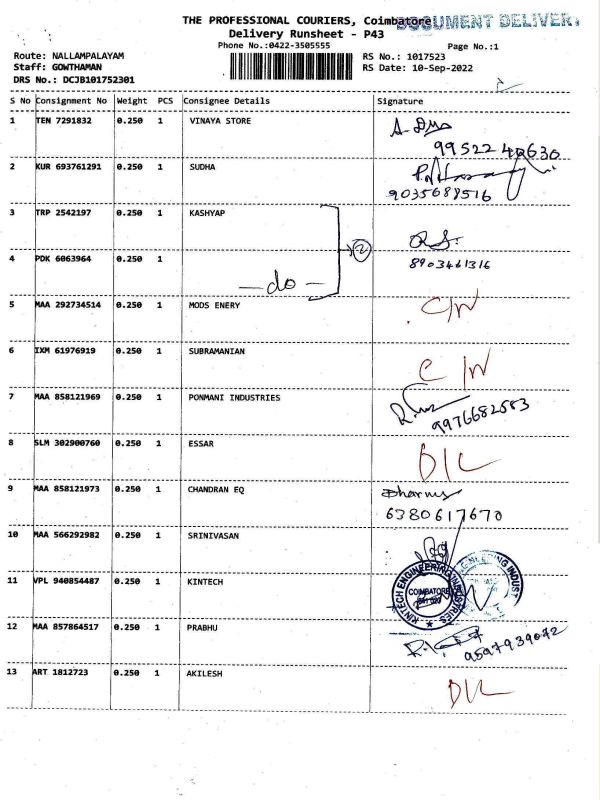 THE PROFESSIONAL COURIERS, Coimbatore
DOCUMENT DELIVERY
Delivery Runsheet - P43
Phone No.:0422-3505555
Page No.:1
Route: NALLAMPALAYAM
RS No.: 1017523
Staff: GOWTHAMAN
RS Date: 10-Sep-2022
DRS No.: DCJB101752301
S No Consignment No Weight PCS Consignee Details Signature
1 TEN 7291832 0.250 1 VINAYA STORE
99522 40630
2 KUR 693761291 0.250 1 SUDHA
9035688516
3 TRP 2542197 0.250 1 KASHYAP
2
4 PDK 6063964 0.250 1
8903461316
— do —
5 MAA 292734514 0.250 1 MODS ENERY C/N
6 IXM 61976919 0.250 1 SUBRAMANIAN C/N
7 MAA 858121969 0.250 1 PONMANI INDUSTRIES
9976682583
8 SLM 302900760 0.250 1 ESSAR D/L
9 MAA 858121973 0.250 1 CHANDRAN EQ
6380617670
10 MAA 566292982 0.250 1 SRINIVASAN
11 VPL 940854487 0.250 1 KINTECH
KINTECH ENGINEERING INDUSTRIES
COIMBATORE
12 MAA 857864517 0.250 1 PRABHU
9597939072
13 ART 1812723 0.250 1 AKILESH D/L